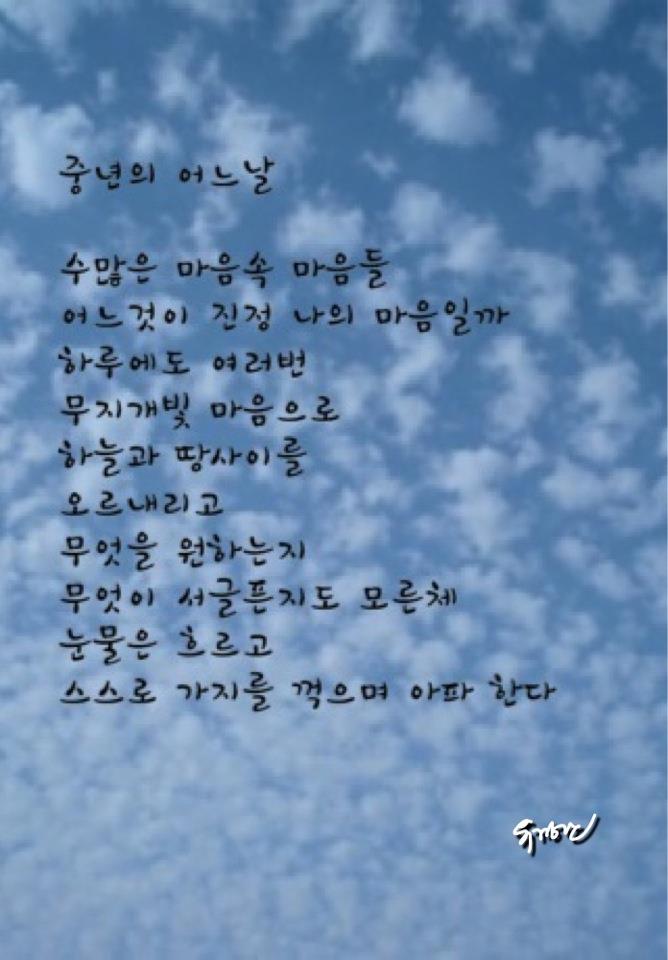 중년의 어느날
수많은 마음속 마음들
어느것이 진정 나의 마음일까
하루에도 여러번
무지개빛 마음으로
하늘과 땅사이를
오르내리고
무엇을 원하는지
무엇이 서글픈지도 모른체
눈물은 흐르고
스스로 가지를 꺽으며 아파 한다